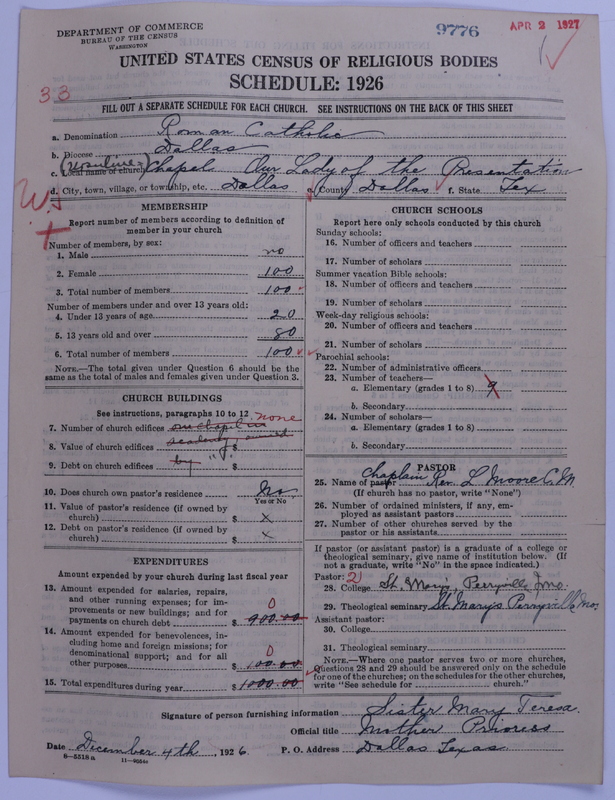 DEPARTMENT OF COMMERCE
BUREAU OF THE CENSUS
WASHINGTON
9776
APR 2 1927
UNITED STATES CENSUS OF RELIGIOUS BODIES
SCHEDULE: 1926
33
FILL OUT A SEPARATE SCHEDULE FOR EACH CHURCH. SEE INSTRUCTIONS ON THE BACK OF THIS SHEET
a. Denomination Roman Catholic
b. Diocese Dallas
c. Local name of church (Ursuline) Chapel Our Lady of the Presentation
d. City, town, village, or township, etc. Dallas e. County Dallas f. State Tex
MEMBERSHIP
Report number of members according to definition of
member in your church
Number of members, by sex:
1. Male no
2. Female 100
3. Total number of members 100
Number of members under and over 13 years old:
4. Under 13 years of age 20
5. 13 years old and over 80
6. Total number of members 100
NOTE.—The total given under Question 6 should be
same as the total of males and females given under Question 3.
CHURCH BUILDINGS
See instructions, paragraphs 10 to 12 none
7. Number of church edifices one chapel in
8. Value of church edifices academy, owned $
9. Debt on church edifices by " $
10. Does church own pastor's residence No
Yes or No
11. Value of pastor's residence (if owned by
church) $ x
12. Debt on pastor's residence (if owned by
church) $ x
EXPENDITURES
Amount expended by your church during last fiscal year
13. Amount expended for salaries, repairs,
and other running expenses; for im-
provements or new buildings; and for
payments on church debt $ 0 900.00
14. Amount expended for benevolences, in-
cluding home and foreign missions; for
denominational support; and for all
other purposes $ 0 100.00
15. Total expenditures during year $ 1000.00
CHURCH SCHOOLS
Report here only schools conducted by this church
Sunday schools:
16. Number of officers and teachers
17. Number of scholars
Summer vacation Bible schools:
18. Number of officers and teachers
19. Number of scholars
Week-day religious schools:
20. Number of officers and teachers
21. Number of scholars
Parochial schools:
22. Number of administrative officers
23. Number of teachers—
a. Elementary (grades 1 to 8) 9
b. Secondary
24. Number of scholars—
a. Elementary (grades 1 to 8)
b. Secondary
PASTOR
25. Name of pastor Chaplain Rev. L Moore C.M
(If church has no pastor, write "None")
26. Number of ordained ministers, if any, em-
ployed as assistant pastors
27. Number of other churches served by the
pastor or his assistants
If pastor (or assistant pastor) is a graduate of a college or
theological seminary, give name of institution below. (If
not a graduate, write "No" in the space indicated.)
Pastor: 2
28. College St. Mary, Perryville, Mo.
29. Theological seminary St. Mary's Perryville, Mo.
Assistant pastor:
30. College
31. Theological seminary
NOTE.—Where one pastor serves two or more churches,
Questions 28 and 29 should be answered only on the schedule
for one of the churches; on the schedules for the other churches,
write "See schedule for church."
Signature of person furnishing information Sister Mary Teresa.
Official title Mother Prioress
Date December 4th, 1926 P. O. Address Dallas Texas.
8-5518 a